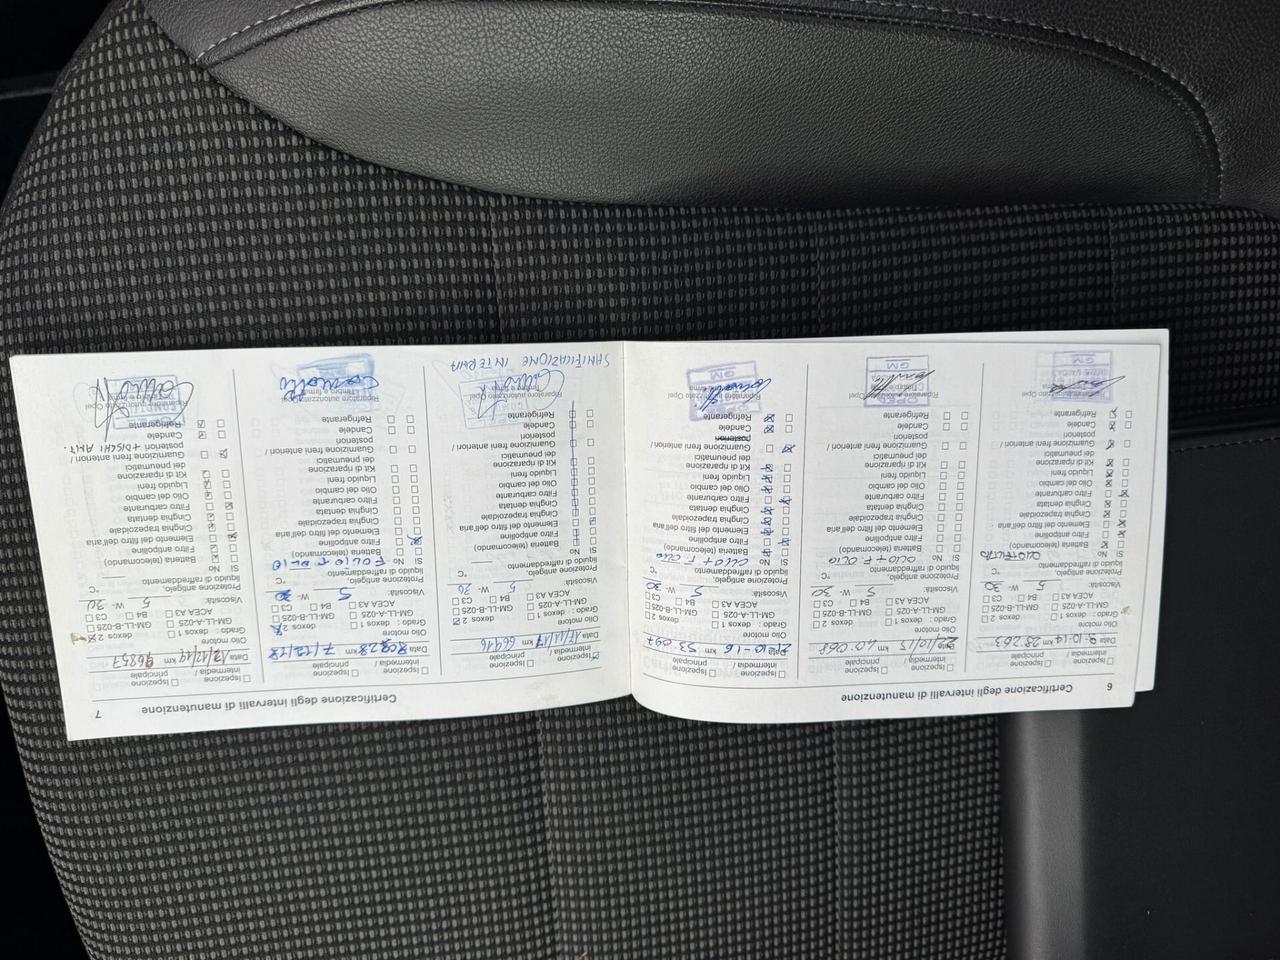 6
Certificazione degli intervalli di manutenzione
Ispezione intermedia /
Ispezione principale
Data 9-10-14 km 28263
Olio motore
Grado: dexos 1
dexos 2
GM-LL-A-025
GM-LL-B-025
ACEA A3
B4
C3
Viscosità: 5 W- 30
Protezione antigelo, liquido di raffreddamento °C
Sì No
Batteria (telecomando)
Filtro antipolline
Elemento del filtro dell'aria
Cinghia trapezoidale
Cinghia dentata
Filtro carburante
Olio del cambio
Liquido freni
Kit di riparazione dei pneumatici
Guarnizione freni anteriori / posteriori
Candele
Refrigerante
GM
Ispezione intermedia /
Ispezione principale
Data km 40068
Olio motore
Grado: dexos 1
dexos 2
GM-LL-A-025
GM-LL-B-025
ACEA A3
B4
C3
Viscosità: 5 W- 30
Protezione antigelo, liquido di raffreddamento °C
Sì No OLIO + F. OLIO
Batteria (telecomando)
Filtro antipolline
Elemento del filtro dell'aria
Cinghia trapezoidale
Cinghia dentata
Filtro carburante
Olio del cambio
Liquido freni
Kit di riparazione dei pneumatici
Guarnizione freni anteriori / posteriori
Candele
Refrigerante
Riparatore autorizzato Opel
Timbro e firma
GM
OPEL
Ispezione intermedia /
Ispezione principale
10-16 km 53.097
Olio motore
Grado: dexos 1
dexos 2
GM-LL-A-025
GM-LL-B-025
ACEA A3
B4
C3
Viscosità: 5 W- 30
Protezione antigelo, liquido di raffreddamento °C
Sì No OLIO + F. OLIO
Batteria (telecomando)
Filtro antipolline
Elemento del filtro dell'aria
Cinghia trapezoidale
Cinghia dentata
Filtro carburante
Olio del cambio
Liquido freni
Kit di riparazione dei pneumatici
Guarnizione freni anteriori / posteriori
Candele
Refrigerante
GM
OPEL
Certificazione degli intervalli di manutenzione
7
Ispezione intermedia /
Ispezione principale
Data 17/11/17 km 66916
Olio motore
Grado: dexos 1
dexos 2
GM-LL-A-025
GM-LL-B-025
ACEA A3
B4
C3
Viscosità: 5 W- 30
Protezione antigelo, liquido di raffreddamento °C
Sì No
Batteria (telecomando)
Filtro antipolline
Elemento del filtro dell'aria
Cinghia trapezoidale
Cinghia dentata
Filtro carburante
Olio del cambio
Liquido freni
Kit di riparazione dei pneumatici
Guarnizione freni anteriori / posteriori
Candele
Refrigerante
Riparatore autorizzato Opel
Timbro e firma
SANIFICAZIONE INTERNA
Ispezione intermedia /
Ispezione principale
Data km 7/12/18
Olio motore
Grado: dexos 1
dexos 2
GM-LL-A-025
GM-LL-B-025
ACEA A3
B4
C3
Viscosità: 5 W- 30
Protezione antigelo, liquido di raffreddamento °C
Sì No F OLIO + OLIO
Batteria (telecomando)
Filtro antipolline
Elemento del filtro dell'aria
Cinghia trapezoidale
Cinghia dentata
Filtro carburante
Olio del cambio
Liquido freni
Kit di riparazione dei pneumatici
Guarnizione freni anteriori / posteriori
Candele
Refrigerante
Riparatore autorizzato Opel
Timbro e firma
Ispezione intermedia /
Ispezione principale
Data 12/12/19 km 98857
Olio motore
Grado: dexos 1
dexos 2
GM-LL-A-025
GM-LL-B-025
ACEA A3
B4
C3
Viscosità: 5 W- 30
Protezione antigelo, liquido di raffreddamento °C
Sì No
Batteria (telecomando)
Filtro antipolline
Elemento del filtro dell'aria
Cinghia trapezoidale
Cinghia dentata
Filtro carburante
Olio del cambio
Liquido freni
Kit di riparazione dei pneumatici
Guarnizione freni anteriori / posteriori + DISCHI ANT.
Candele
Refrigerante
Riparatore autorizzato Opel
Timbro e firma